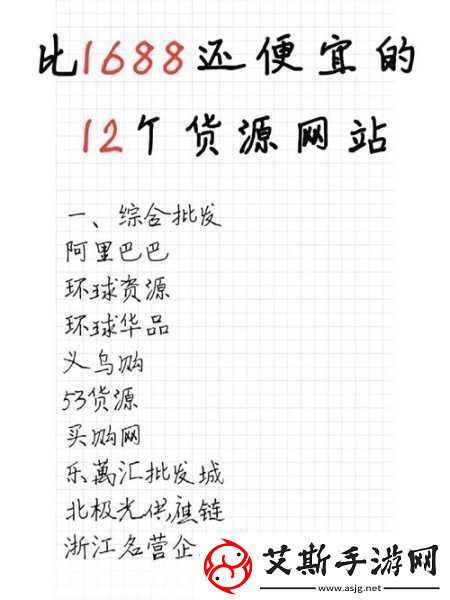 比1688还便宜的
12个货源网站
一、综合批发
阿里巴巴
环球资源
环球华品
义乌购
53货源
买购网
乐萬汇批发城
北极光供应链
浙江名营企
艾斯手游网
www.asjg.net